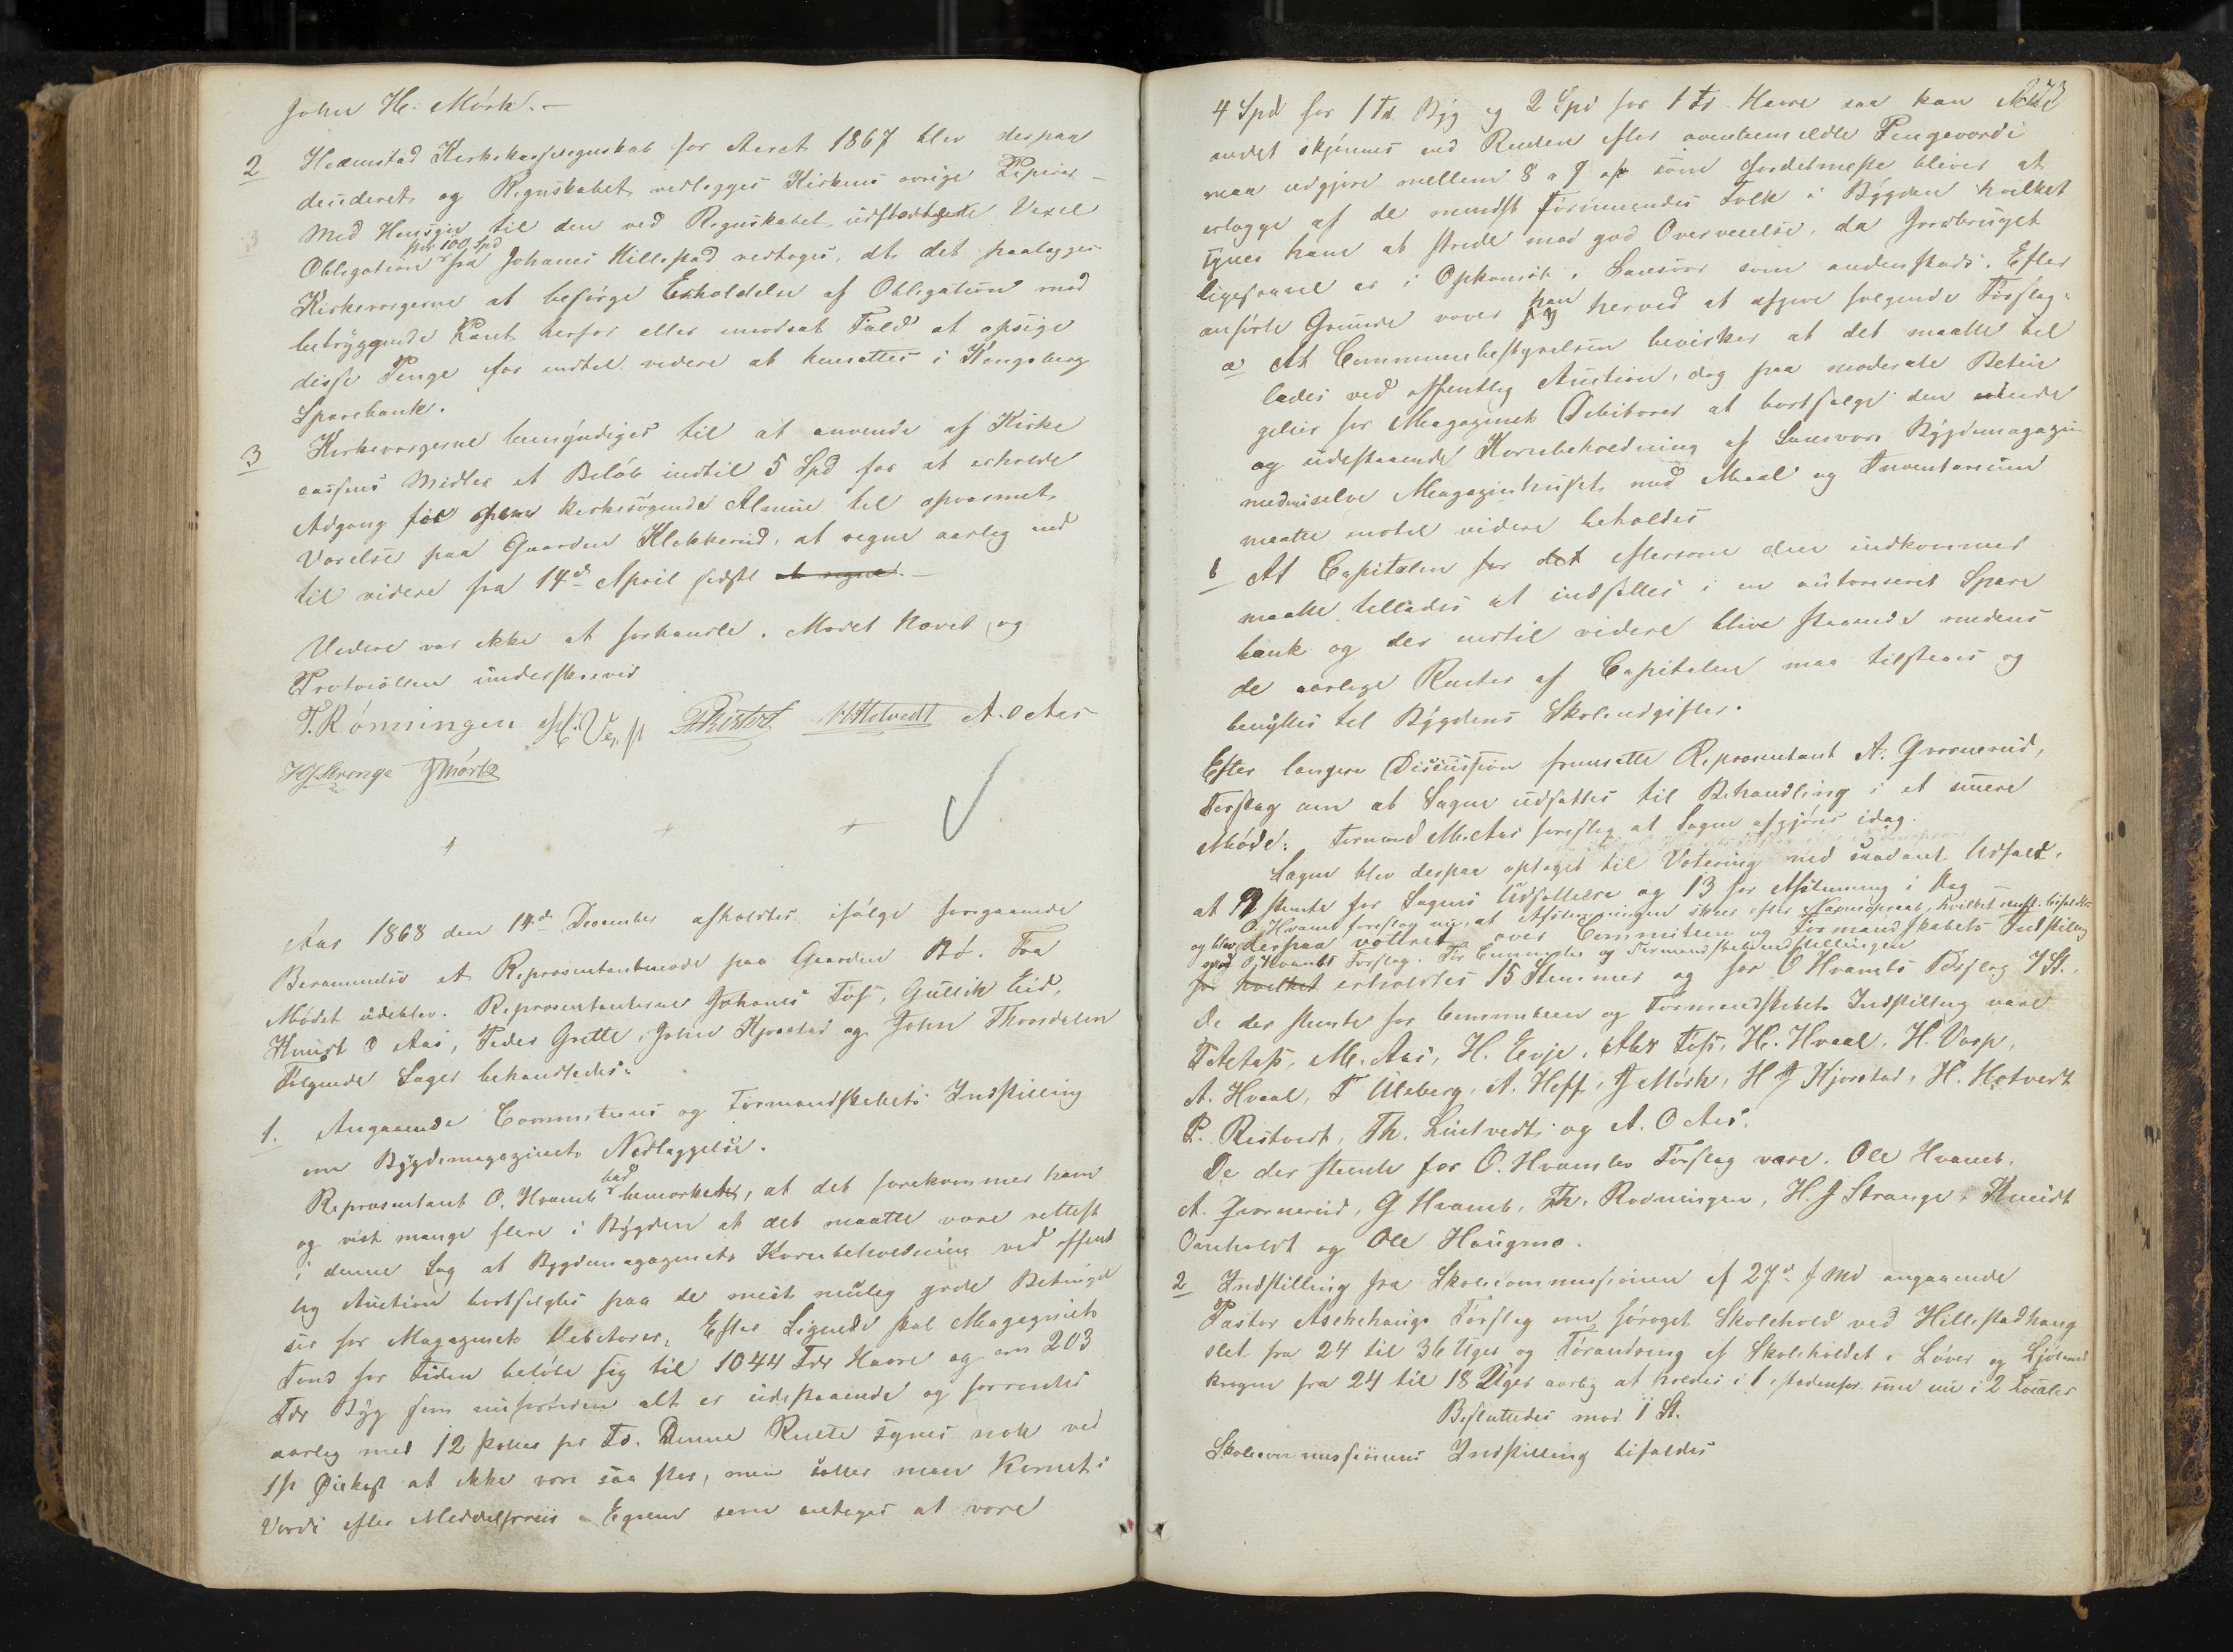 John H. Mörk. —
2 Hedenstad Kirkekasseregnskab for Aaret 1867 blev derpaa
decideret og Regnskabet vedlegges Kirkens øvrige Papirer —
3 Med Hensyn til den ved Regnskabet udstedte Vexel
Obligation paa 100 Spd fra Johanes Hillestad vedtoges, at det paalægges
Kirkeværgerne at besørge Erholdelse af Obligation mod
betryggende Pant herfor eller i modsat Fald at opsige
disse Penge for indtil videre at hensættes i Kongsberg
Sparebank.
3 Kirkeværgerne bemyndiges til at anvende af Kirke
cassens Midler et Beløb indtil 5 Spd for at erholde
Adgang for den kirkesøgende Almue til opvarmet
Værelse paa Gaarden Klekkerud, at regne aarlig ind
til videre fra 14de April sidstl at regne. —
Videre var ikke at forhandle. Mødet hævet og
Protocollen underskrevet
T. Rønningen H. Verp PRistvet HHotvedt A. O Aas
HJStrange JMørk
Aar 1868 den 14de December afholdtes ifølge foregaaende
Berammelse et Repræsentantmøde paa Gaarden Bø. Fra
Mødet udeblev. Repræsentanterne Johanes Fos, Gullik Eid,
Knudt O Aas, Peder Grette, John Kjørstad og John Thorsdalen
Følgende Sager behandledes:
1. Angaaende Committeens og Formandskabets Indstilling
om Bygdemagazinets Nedlæggelse.
Repræsentant O. Hvamb bad bemærket, at det forekommer ham
og vist mange flere i Bygden at det maatte være rettest
i denne Sag at Bygdemagazinets Kornbeholdning ved offent
lig Auction bortsælges paa de mest mulig gode Betingel
ser for Magazinets Debitorer. Efter Sigende skal Magazinets
Fond for Tiden beløbe sig til 1044 Tdr Havre og om 203
Tdr Byg som anførtes alt er udestaaende og forrentes
aarlig med 12 Potter pr Td. Denne Rente synes nok ved
1ste Øiekast at ikke være saa stor, men sætter man Kornets
Værdi efter Middelpriis i Egnen som antages at være
4 Spd for 1 Td. Byg og 2 Spd for 1 Td Havre saa kan ikke
andet skjønnes end Renten efter ovenbemeldte Pengeværdi
maa udgjøre mellem 8 a 9 som fordetmeste bliver at
erlægge af de mindst formuendes Folk i Bygden hvilket
synes ham at stride mod god Overveielse, da Jordbruget
ligesaavel er i Opkomst i Sandsvær som andenstads. Efter
anførte Grunde vover han herved at afgive følgende Forslag:
a At Communebestyrelsen bevirker at det maatte til
lades ved offentlig Auction, dog paa moderate Betin
gelser for Magazinets Debitorer at bortsælge den inde
og udestaaende Kornbeholdning af Sandsværs Bygdemagazin
medens selve Magazinhuset med Maal og Inventarium
maatte indtil videre beholdes
b At Capitalen for det eftersom den indkommer
maatte tillades at indsættes i en autoriseret Spare
bank og der indtil videre blive staaende medens
de aarlige Renter af Capitalen maa tilstaaes og
benyttes til Bygdens Skoleudgifter.
Efter længere Discussion fremsatte Repræsentant A. Gvarnerud,
Forslag om at Sagen udsættes til Behandling i et senere
Møde: Formand M. Aas foreslog at Sagen afgjøres idag.
Sagen blev derpaa optaget til Votering med saadant Udfald,
at 9 stemte for Sagens Udsættelse og 13 for Afstemning i Dag
O. Hvamb foreslog nu, at Afstemningen skeer efter Navneopraab, hvilket enst. bifaldtes
og blev derpaa votteret over Committeen og Formandskabets Indstilling
og O. Hvambs Forslag. For Committee og Formandskabsindstillingen
for hvilket erholdtes 15 Stemmer og for O Hvambs Forslag 7 St.
De der stemte for Committeen og Formandskabets Indstilling vare
M. Aas, H. Evje, Fos, H. Hvaal, H. Verp,
A. Hvaal, T Ulleberg, A. Hoff, J Mørk, H J Kjørstad, H. Hotvedt
P. Ristvedt, Th. Lindtvedt og A. O Aas.
De der stemte for O. Hvambs Forslag vare. Ole Hvamb,
A. Gvarnerud, G Hvamb, Th. Rønningen, H. J Strange, Knudt
Omholdt og Ole Haugmo.
2 Indstilling fra Skolecommissionen af 27de f. Md angaaende
Pastor Aschehaugs Forslag om forøget Skolehold ved Hillestadhaug
slet fra 24 til 36 Uger og Forandring af Skoleholdet i Løver og
krogen fra 24 til 18 Uger aarlig at holdes i 1 istedenfor som nu i 2 Localer
Besluttedes mod 1 St.
Skolecommissionens Indstilling bifaldes